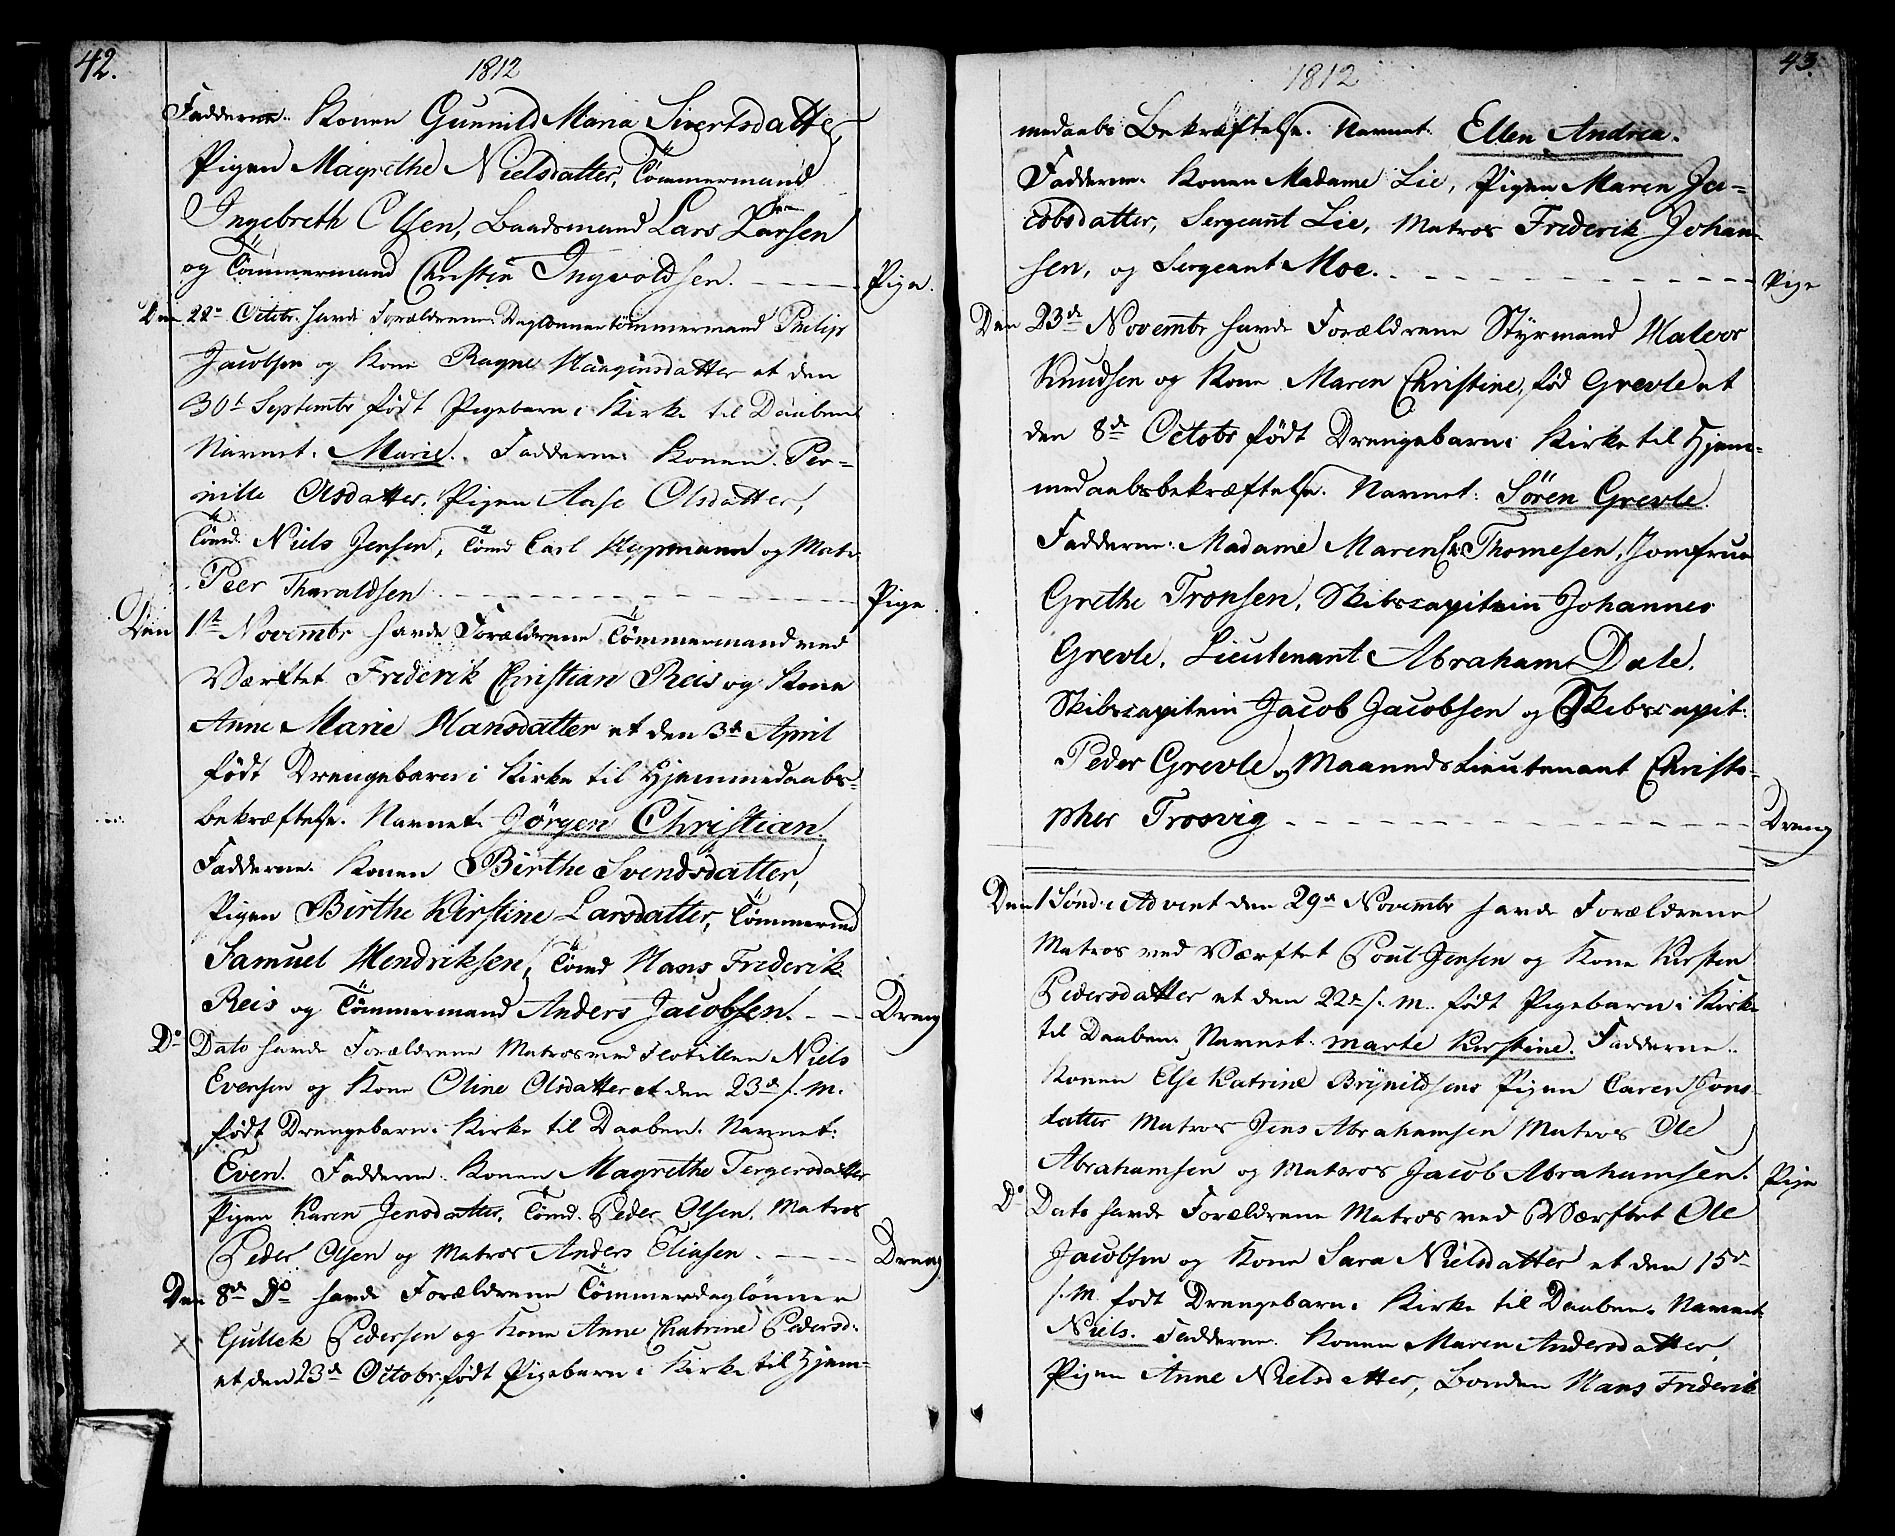 42.
1812
Fadderne. Konen Gunnild Maria Sivertsdatter,
Pigen Magrethe Nielsdatter, Tömmermand
Ingebreth Olsen, Baadsmand Lars Larsen
og Tömmermand Christen Ingvoldsen. Pige.
Den 22de Octobr. havde Forældrene Daglönnertömmermand Philip
Jacobsen og Kone Ragne Haaginsdatter et den
30t Septembr födt Pigebarn i Kirke til Daaben
Navnet: Marie. Fadderne: Konen Per-
nille Olsdatter, Pigen Aase Olsdatter,
Tömd. Niels Jensen, Tömd Carl Koppmann og Matr.
Peer Tharaldsen Pige.
Den 1te Novembr havde Forældrene Tömmermand ved
Værftet Friderik Christian Reis og Kone
Anne Marie Hansdatter et den 3de April
födt Drengebarn i Kirke til Hjemmedaabs-
bekræftelse. Navnet: Jörgen Christian.
Fadderne. Konen Birthe Svendsdatter,
Pigen Birthe Kirstine Larsdatter, Tömmermd
Samuel Hendriksen, Tömd Hans Friderik
Reis og Tömmermand Anders Jacobsen. Dreng
Do Dato havde Forældrene Matros ved Flotillen Niels
Evensen og Kone Oline Olsdatter et den 23de f. M.
födt Drengebarn i Kirke til Daaben. Navnet:
Even. Fadderne: Konen Magrethe Tergersdatter
Pigen Karen Jensdatter, Tömd. Peder Olsen, Matros
Peder Olsen og Matros Anders Eliasen. Dreng
Den 8de Do havde Forældrene Tömmerdaglönner
Gullek Pedersen og Kone Anne Chatrine Pedersd.
et den 23de Octobr födt Pigebarn i Kirke til Hjem-
43.
1812
medaabs Bekræftelse. Navnet: Ellen Andrea.
Fadderne. Konen Madame Lie, Pigen Maren Ja-
cobsdatter, Sergeant Lie, Matros Friderik Johan-
sen, og Sergeant Moe. Pige
Den 23de Novembr havde Forældrene Styrmand Halvor
Knudsen og Kone Maren Christine, föd Grevle et
den 8de Octobr födt Drengebarn i Kirke til Hjem-
medaabsbekræftelse. Navnet: Sören Grevle.
Fadderne: Madame Maren Thomesen, Jomfrue
Grethe Tronsen, Skibscapitein Johannes
Grevle, Lieutenant Abraham Dale,
Skibscapitein Jacob Jacobsen og Skibscapit.
Peder Grevle og Maaneds Lieutenant Christo-
pher Trosvig Dreng
Den 1 Sönd. i Advent den 29de Novembr havde Forældrene
Matros ved Værftet Poul Jensen og Kone Kirsten
Pedersdatter et den 22de f. M. födt Pigebarn i Kirke
til Daaben. Navnet: Marte Kirstine. Fadderne:
Konen Else Katrine Brynildsens Pigen Caren Jons-
datter Matros Jens Abrahamsen Matros Ole
Abrahamsen og Matros Jacob Abrahamsen. Pige
Do Dato havde Forældrene Matros ved Værftet Ole
Jacobsen og Kone Sara Nielsdatter et den 15de
f. M. födt Drengebarn i Kirke til Daaben. Navnet
Niels. Fadderne. Konen Maren Andersdatter,
Pigen Anne Nielsdatter, Bonden Hans Friderik